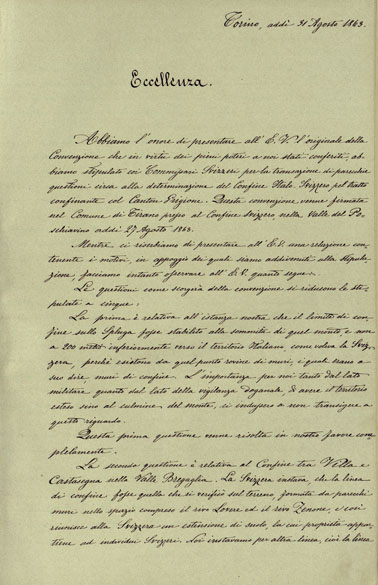 Torino, addì 31 Agosto 1863.
Eccellenza.
Abbiamo l'onore di presentare all'E.V. l'originale della
Convenzione che in virtù dei pieni poteri a noi stati conferiti, ab-
biamo stipulato coi Commissari Svizzeri per la transazione di parecchie
questioni circa alla determinazione del Confine Italo-Svizzero pel tratto
confinante col Canton Grigione. Questa convenzione venne formata
nel Comune di Tirano presso al Confine Svizzero, nella Valle del Po-
schiavino addì 27 Agosto 1863.
Mentre ci riserbiamo di presentare all'E.V. una relazione con-
tenente i motivi, in appoggio dei quali siamo addivenuti alla stipula-
zione, facciamo intanto osservare all'E.V. quanto segue.
Le questioni come scorgerà della convenzione si riducono le sti-
pulate a cinque.
La prima è relativa all'istanza nostra che il limite di con-
fine sullo Spluga fosse stabilito alla sommità di quel monte e non
a 200 metri inferiormente verso il territorio Italiano come voleva la Sviz-
zera, perchè esistono da quel punto rovine di muri, i quali erano a
suo dire, muri di confine. L'importanza per noi tanto dal lato
militare, quanto dal lato della vigilanza doganale di avere il territorio
esteso sino al culmine del monte, ci indussero a non transigere a
questo riguardo.
Questa prima questione venne risolta in nostro favore com-
pletamente.
La seconda questione è relativa al Confine tra Villa e
Castasegna nella Valle Bregaglia. La Svizzera instava che la linea
di confine fosse quella che si verificò sul terreno, formata da parecchi
muri nello spazio compreso il rivo Lovere ed il rivo Zenone, e così
reunisse alla Svizzera un estensione di suolo, la cui proprietà appar-
tiene ad individui Svizzeri. Noi instavamo per altra linea, cioè la linea